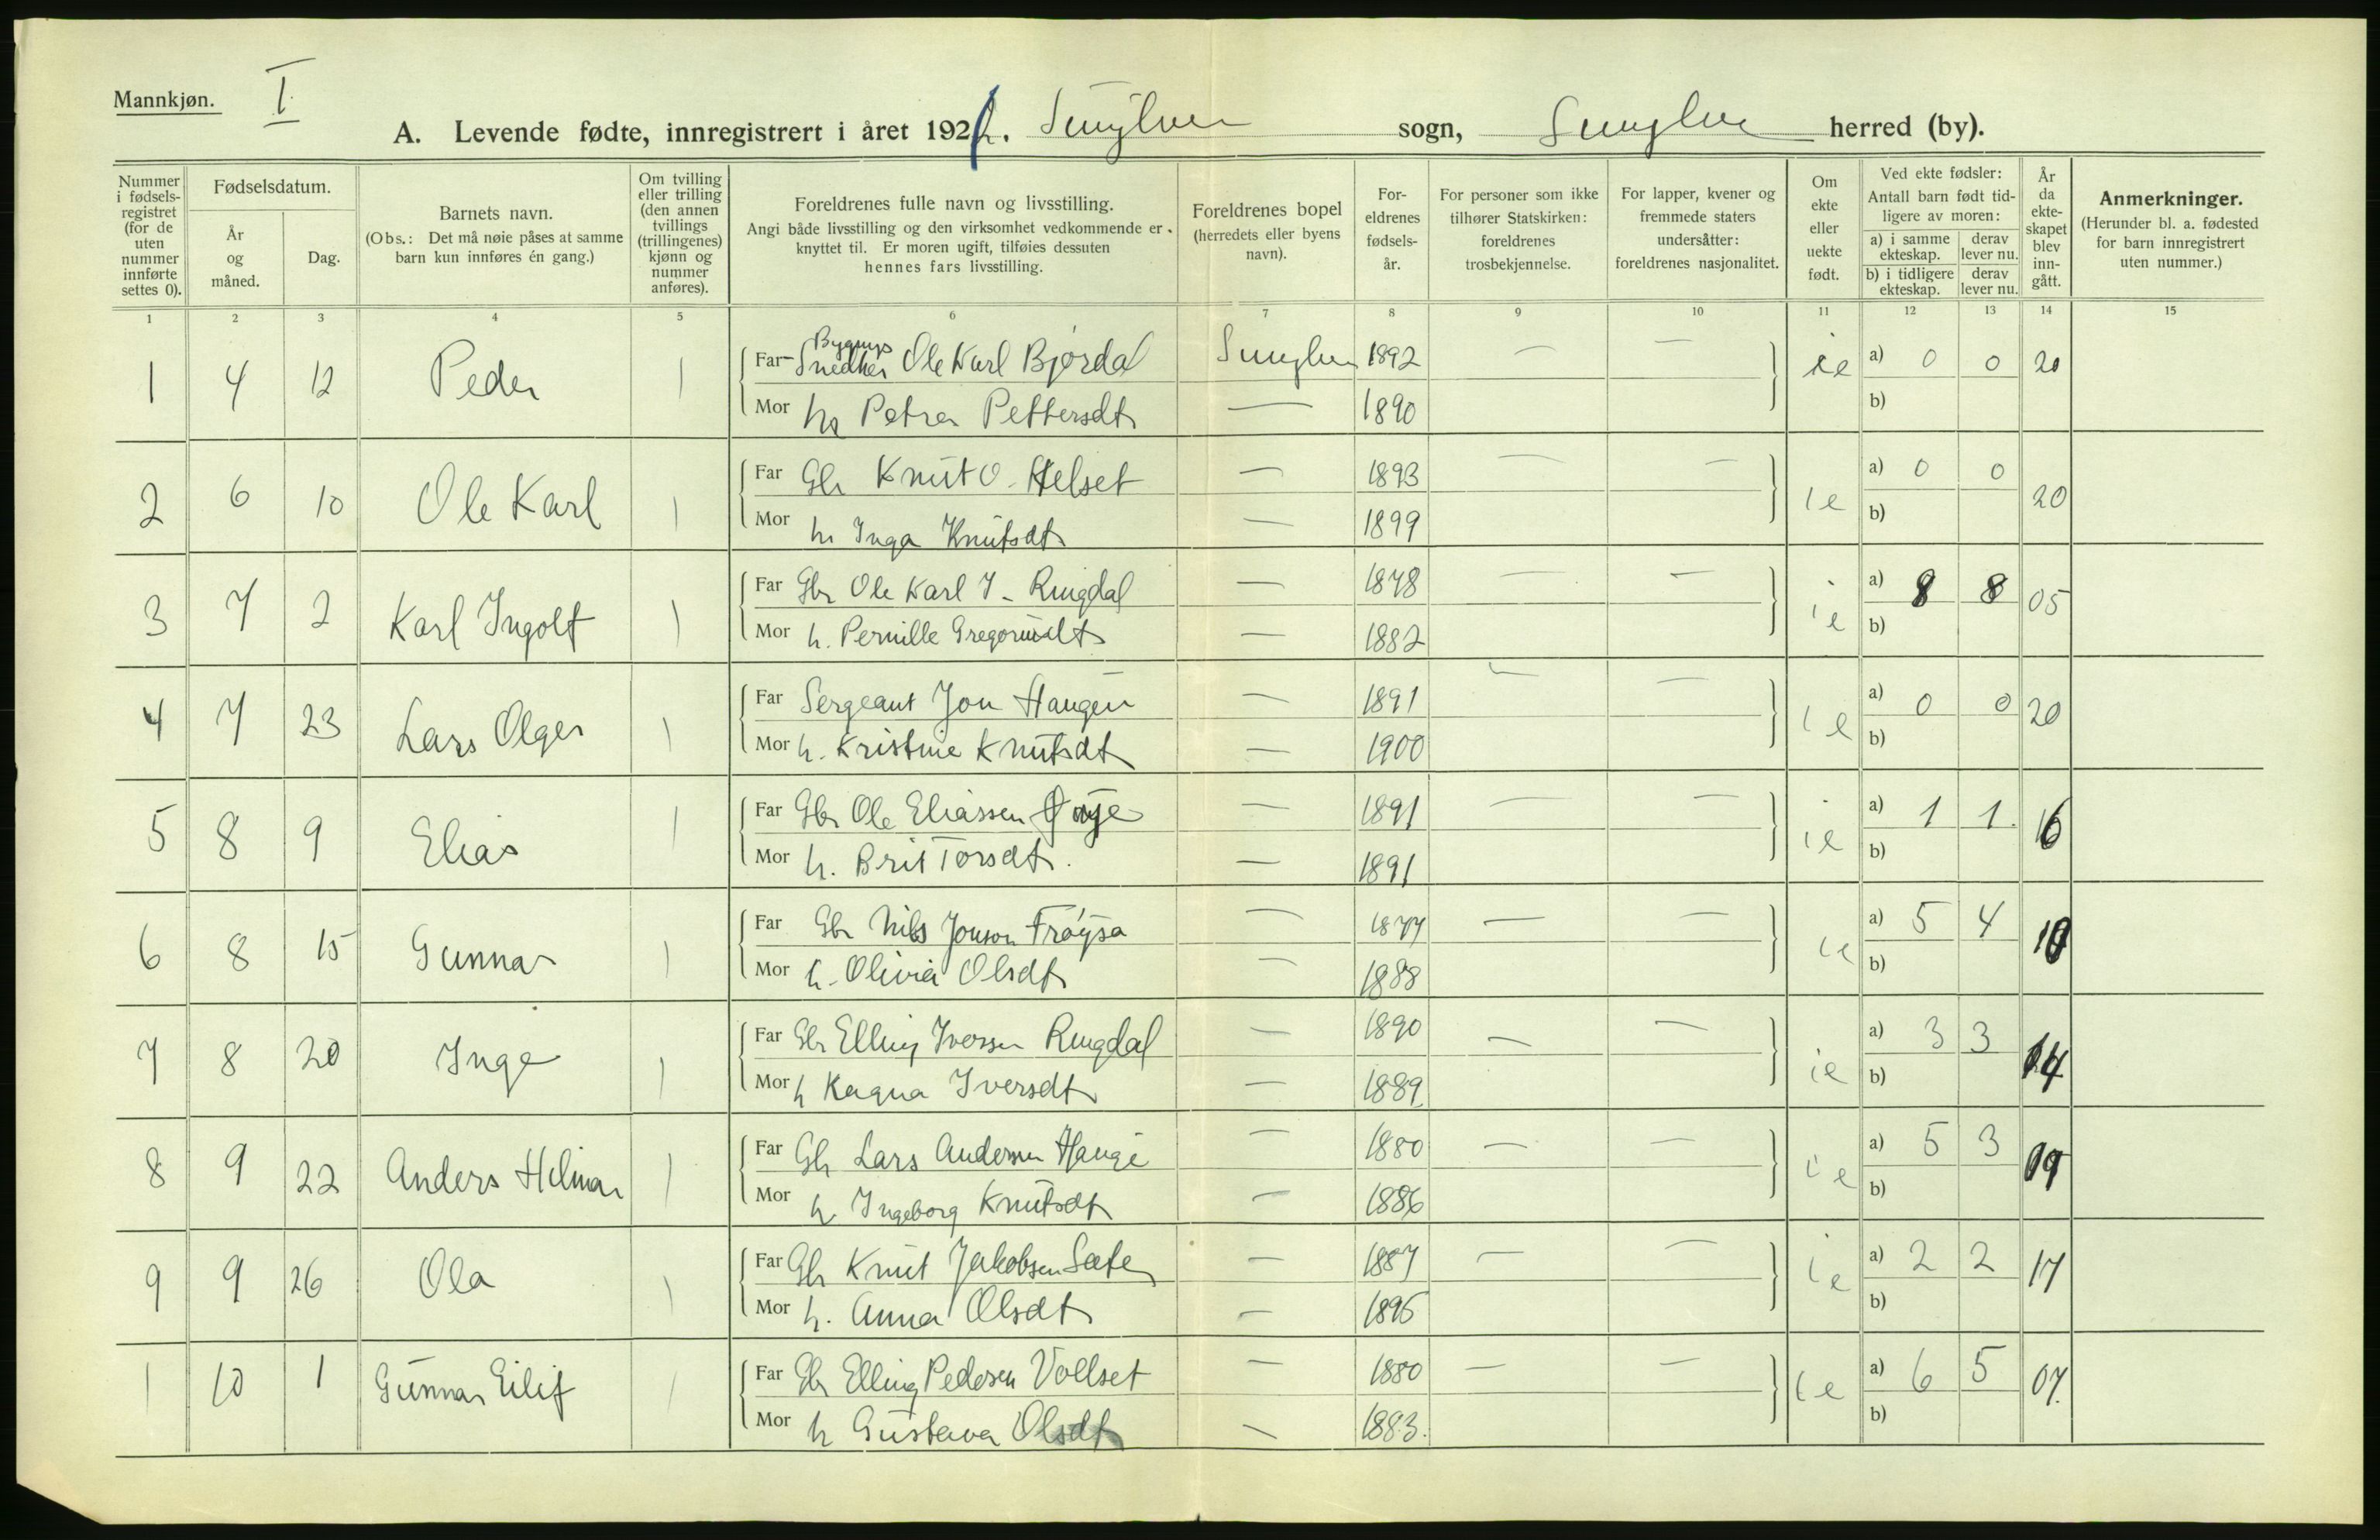 Mannkjøn. I
A. Levende fødte, innregistrert i året 192 . Sunylven sogn, Sunylven herred (by).
Nummer i fødsels-registret (for de uten nummer innførte settes 0).
Fødselsdatum.
År og måned.
Dag.
Barnets navn.
(Obs.: Det må nøie påses at samme barn kun innføres én gang.)
Om tvilling eller trilling (den annen tvillings (trillingenes) kjønn og nummer anføres).
Foreldrenes fulle navn og livsstilling.
Angi både livsstilling og den virksomhet vedkommende er knyttet til. Er moren ugift, tilføies dessuten hennes fars livsstilling.
Foreldrenes bopel (herredets eller byens navn).
For-eldrenes fødsels-år.
For personer som ikke tilhører Statskirken: foreldrenes trosbekjennelse.
For lapper, kvener og fremmede staters undersåtter: foreldrenes nasjonalitet.
Om ekte eller uekte født.
Ved ekte fødsler:
Antall barn født tid-ligere av moren:
a) i samme ekteskap. derav lever nu.
b) i tidligere ekteskap. derav lever nu.
År da ekte-skapet blev inn-gått.
Anmerkninger.
(Herunder bl. a. fødested for barn innregistrert uten nummer.)
1 2 3 4 5 6 7 8 9 10 11 12 13 14 15
1 4 12 Peder 1 Far Bygnings Snedker Ole Karl Bjørdal Sunylven 1892 — — ie a) 0 0 20
Mor h Petra Pettersdt — 1890 b)
2 6 10 Ole Karl 1 Far Gbr Knut O. Helset — 1893 — — ie a) 0 0 20
Mor h. Inga Knutsdt — 1899 b)
3 7 2 Karl Ingolf 1 Far Gbr Ole Karl I. Ringdal — 1878 — — ie a) 8 8 05
Mor h. Pernille Gregoriusdt — 1882 b)
4 7 23 Lars Olger 1 Far Sergeant Jon Haugen — 1891 — — ie a) 0 0 20
Mor h. Kristine Knutsdt — 1900 b)
5 8 9 Elias 1 Far Gbr Ole Eliassen Øye — 1891 — — ie a) 1 1 16
Mor h. Brit Torsdt. — 1891 b)
6 8 15 Gunnar 1 Far Gbr Nils Jonson Frøysa — 1877 — — ie a) 5 4 10
Mor h. Olivia Olsdt — 1888 b)
7 8 20 Inge 1 Far Gbr Elling Iversen Ringdal — 1890 — — ie a) 3 3 14
Mor h Ragna Iversdt — 1889 b)
8 9 22 Anders Hilmar 1 Far Gbr Lars Andersen Hauge — 1880 — — ie a) 5 3 09
Mor h Ingeborg Knutsdt — 1886 b)
9 9 26 Ola 1 Far Gbr Knut Jakobsen Sæte — 1887 — — ie a) 2 2 17
Mor h. Anna Olsdt — 1895 b)
1 10 1 Gunnar Eilif 1 Far Gbr Elling Pedersen Vollset — 1880 — — ie a) 6 5 07.
Mor h Gustava Olsdt — 1883. b)